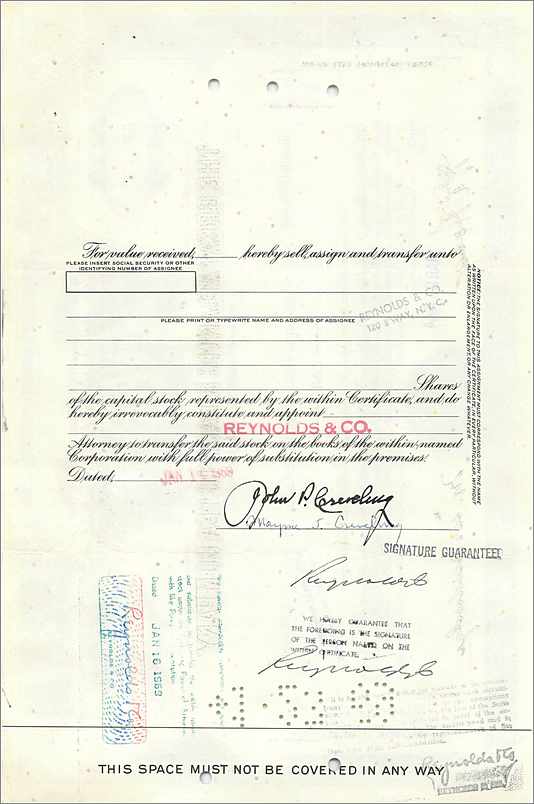 For value received, hereby sell, assign and transfer unto
PLEASE INSERT SOCIAL SECURITY OR OTHER
IDENTIFYING NUMBER OF ASSIGNEE
REYNOLDS & CO.
120 B'WAY, N.Y.C.
PLEASE PRINT OR TYPEWRITE NAME AND ADDRESS OF ASSIGNEE
Shares
of the capital stock represented by the within Certificate, and do
hereby irrevocably constitute and appoint
REYNOLDS & CO.
Attorney to transfer the said stock on the books of the within named
Corporation with full power of substitution in the premises.
Dated,
NOTICE: THE SIGNATURE TO THIS ASSIGNMENT MUST CORRESPOND WITH THE NAME
AS WRITTEN UPON THE FACE OF THE CERTIFICATE, IN EVERY PARTICULAR, WITHOUT
ALTERATION OR ENLARGEMENT, OR ANY CHANGE WHATEVER.
John P. Creveling
Mayme J. Creveling
SIGNATURE GUARANTEED
Reynolds
WE HEREBY GUARANTEE THAT
THE FOREGOING IS THE SIGNATURE
OF THE PERSON NAMED ON THE
WITHIN CERTIFICATE.
Reynolds
JAN 16 1968
Reynolds
THIS SPACE MUST NOT BE COVERED IN ANY WAY